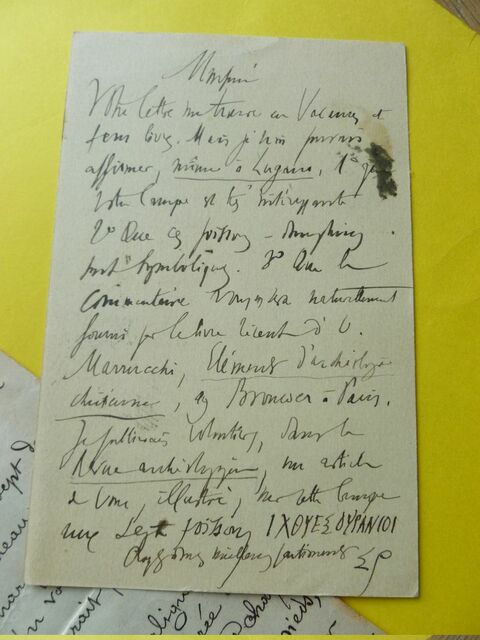 Monsieur
Votre lettre me trouve en Vacances et
sans livres. Mais je puis
affirmer, même à Lugano, 1° que
Votre lampe est très intéressante
2° Que ces poissons-dauphins
sont symboliques. 3° Que le
Commentaire vous sera naturellement
fourni par le livre récent d'O.
Marrucchi, Eléments d'archéologie
chrétienne, Brouwer à Paris.
Je publierais volontiers, dans la
Revue archéologique, un article
de vous, illustré, sur cette lampe
aux sept poissons ΙΧΘΥΕΣΟΥΡΑΝΙΟΙ
meilleurs sentiments
sept d